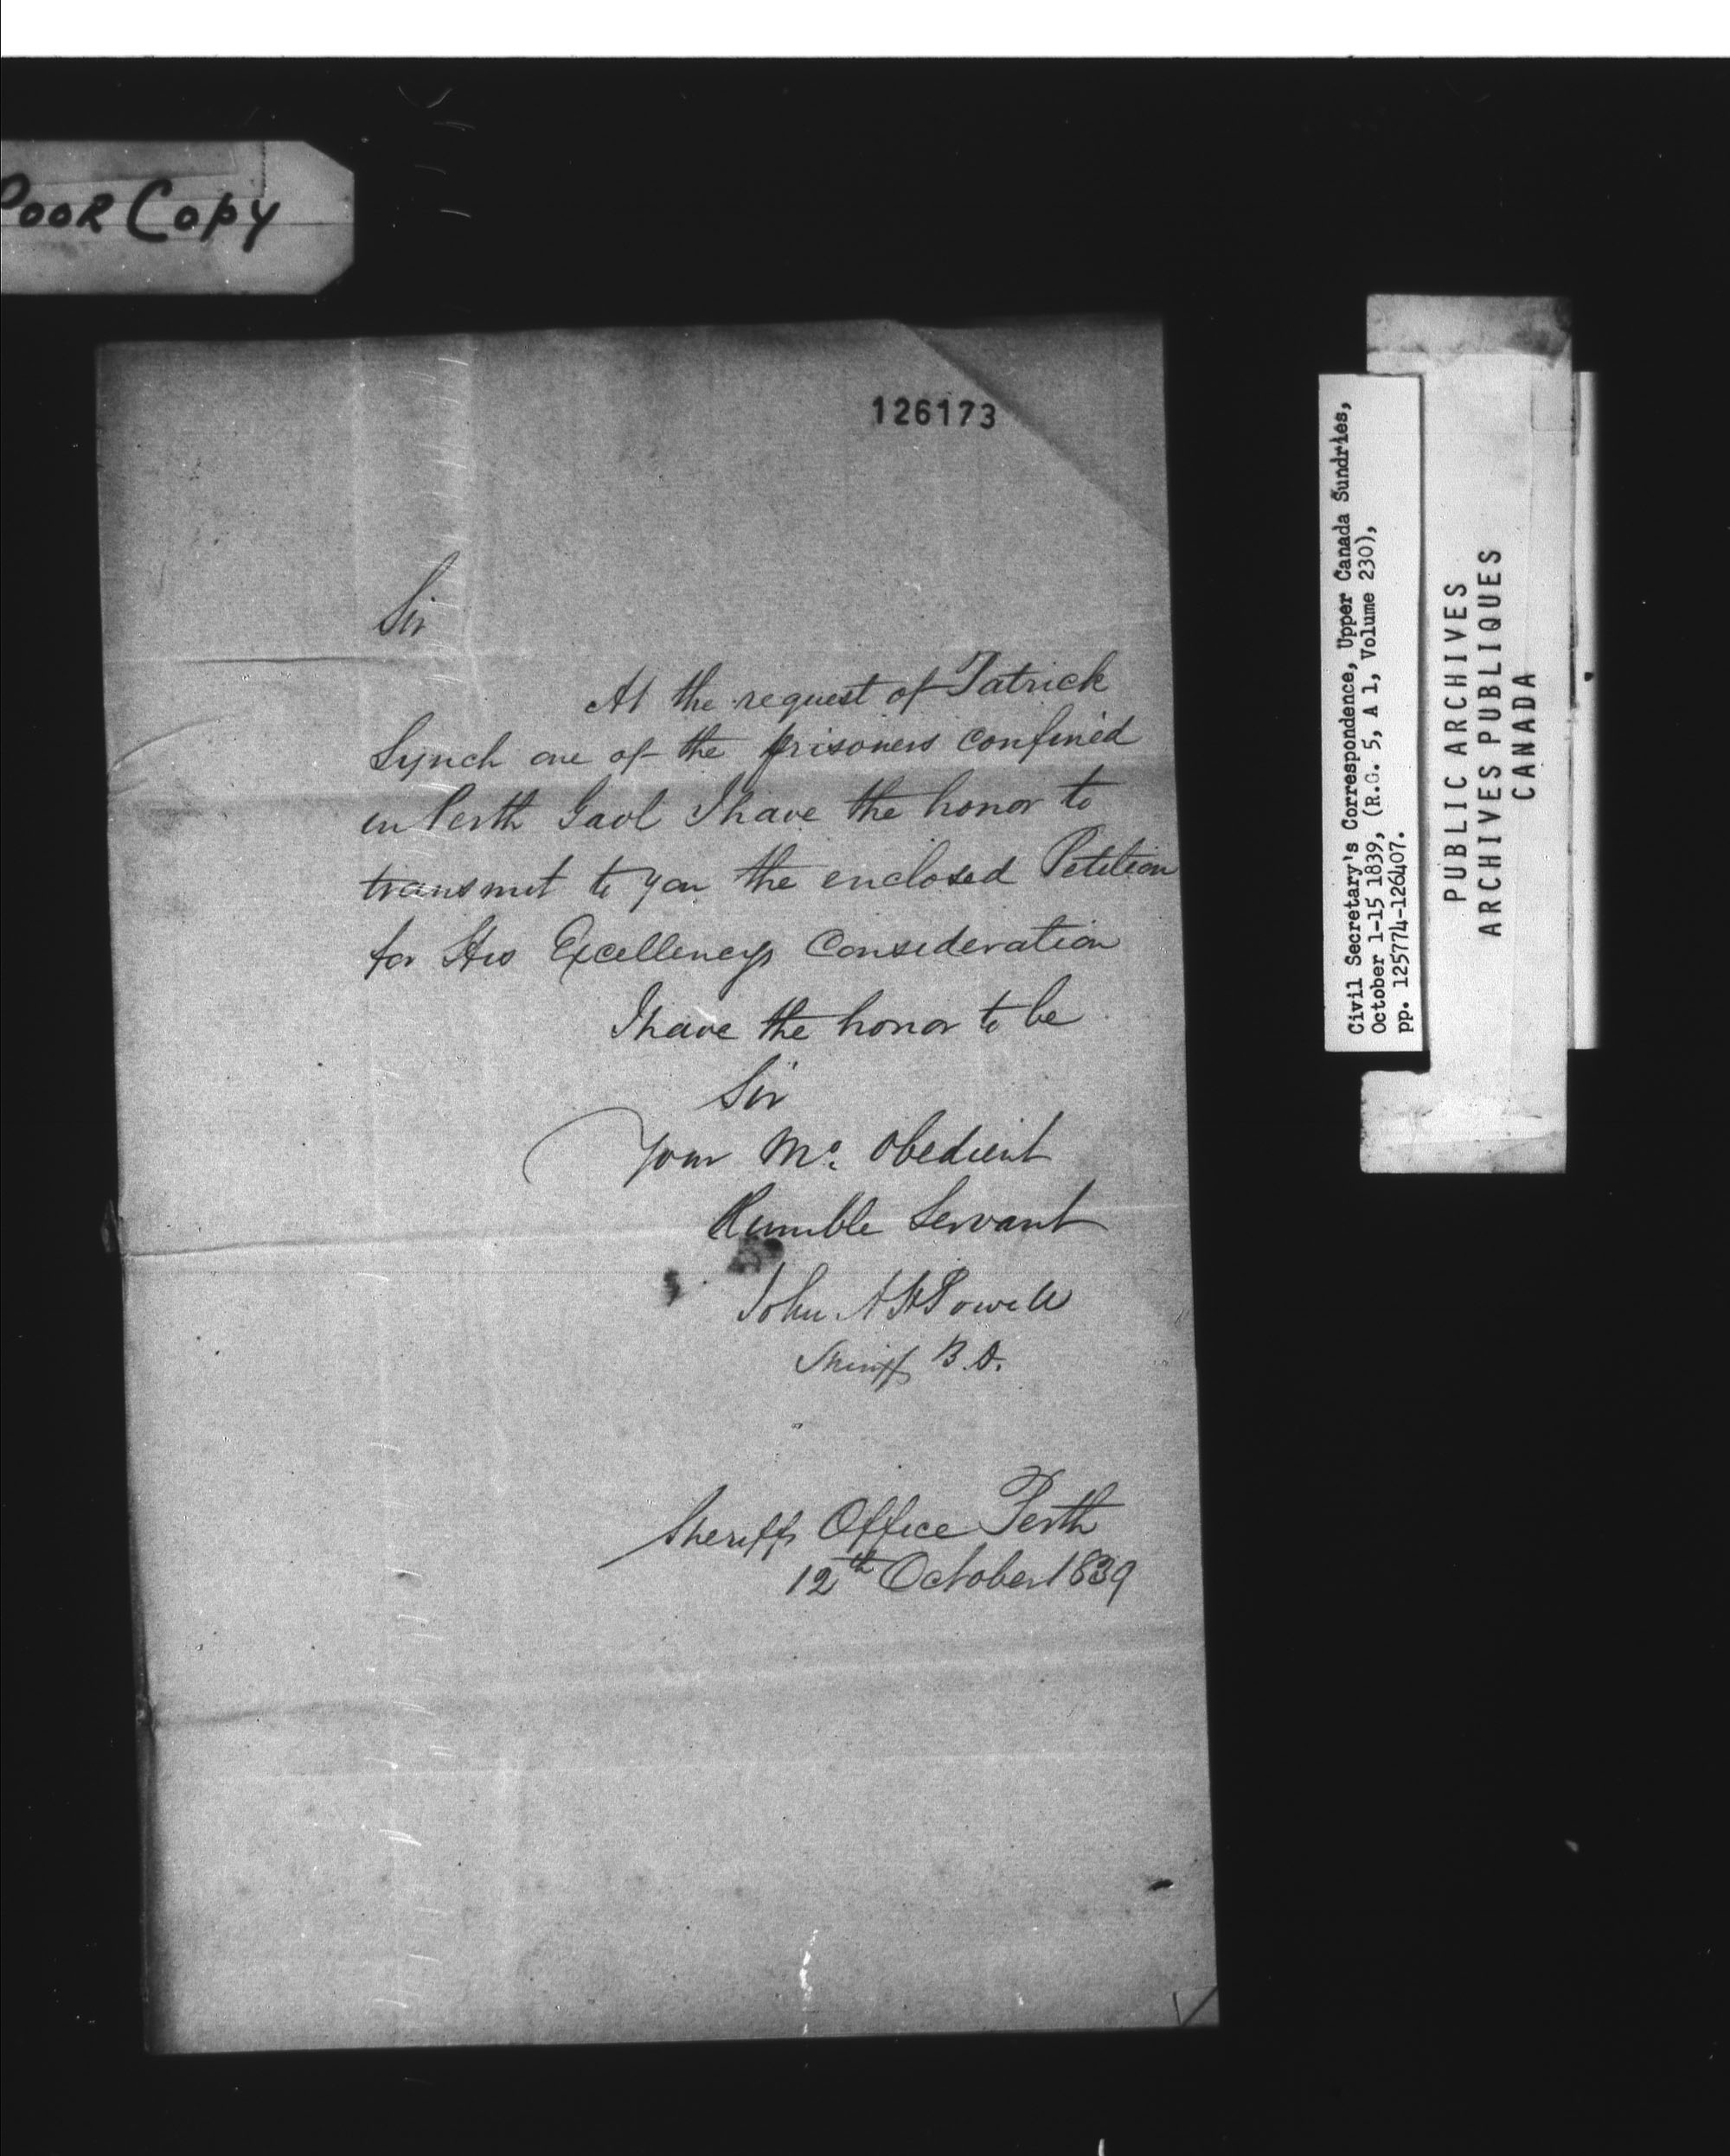 Poor Copy
126173
Sir
At the request of Patrick
Lynch one of the prisoners confined
in Perth Gaol I have the honor to
transmit to you the enclosed Petition
for His Excellencys Consideration
I have the honor to be
Sir
Your Mo. Obedient
Humble Servant
John A H Powell
Sheriff B.D.
Sheriffs Office Perth
12th October 1839
Civil Secretary's Correspondence, Upper Canada Sundries,
October 1-15 1839, (R.G. 5, A 1, Volume 230),
pp. 125774-126407.
PUBLIC ARCHIVES
ARCHIVES PUBLIQUES
CANADA